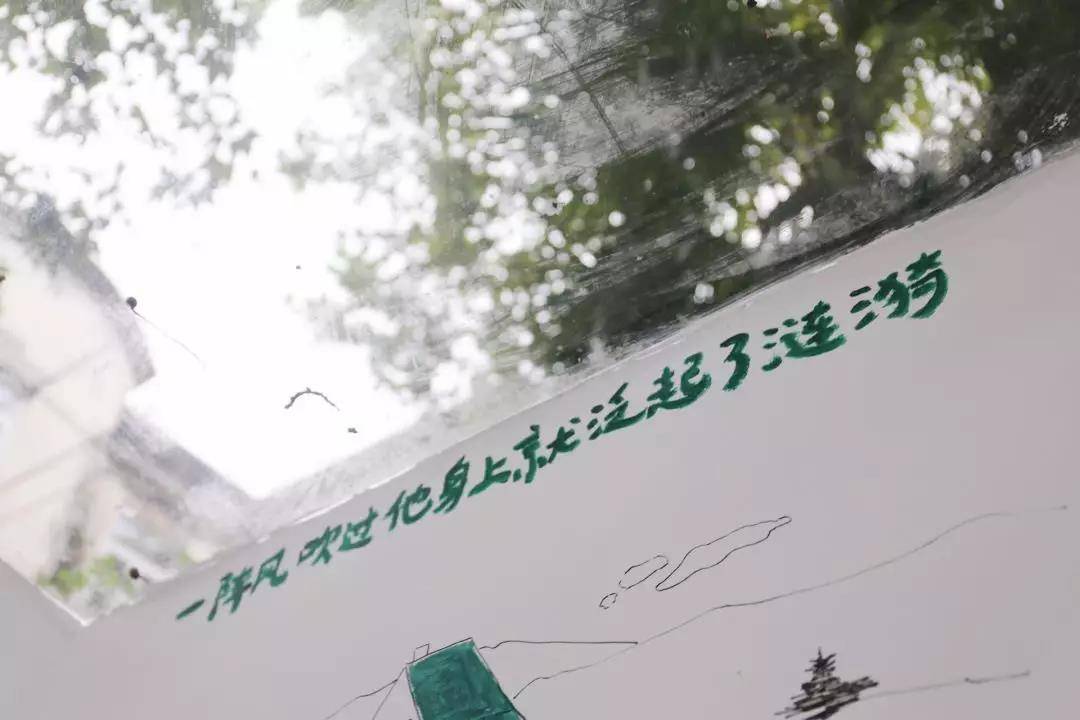 一阵风吹过他身上就泛起了涟漪